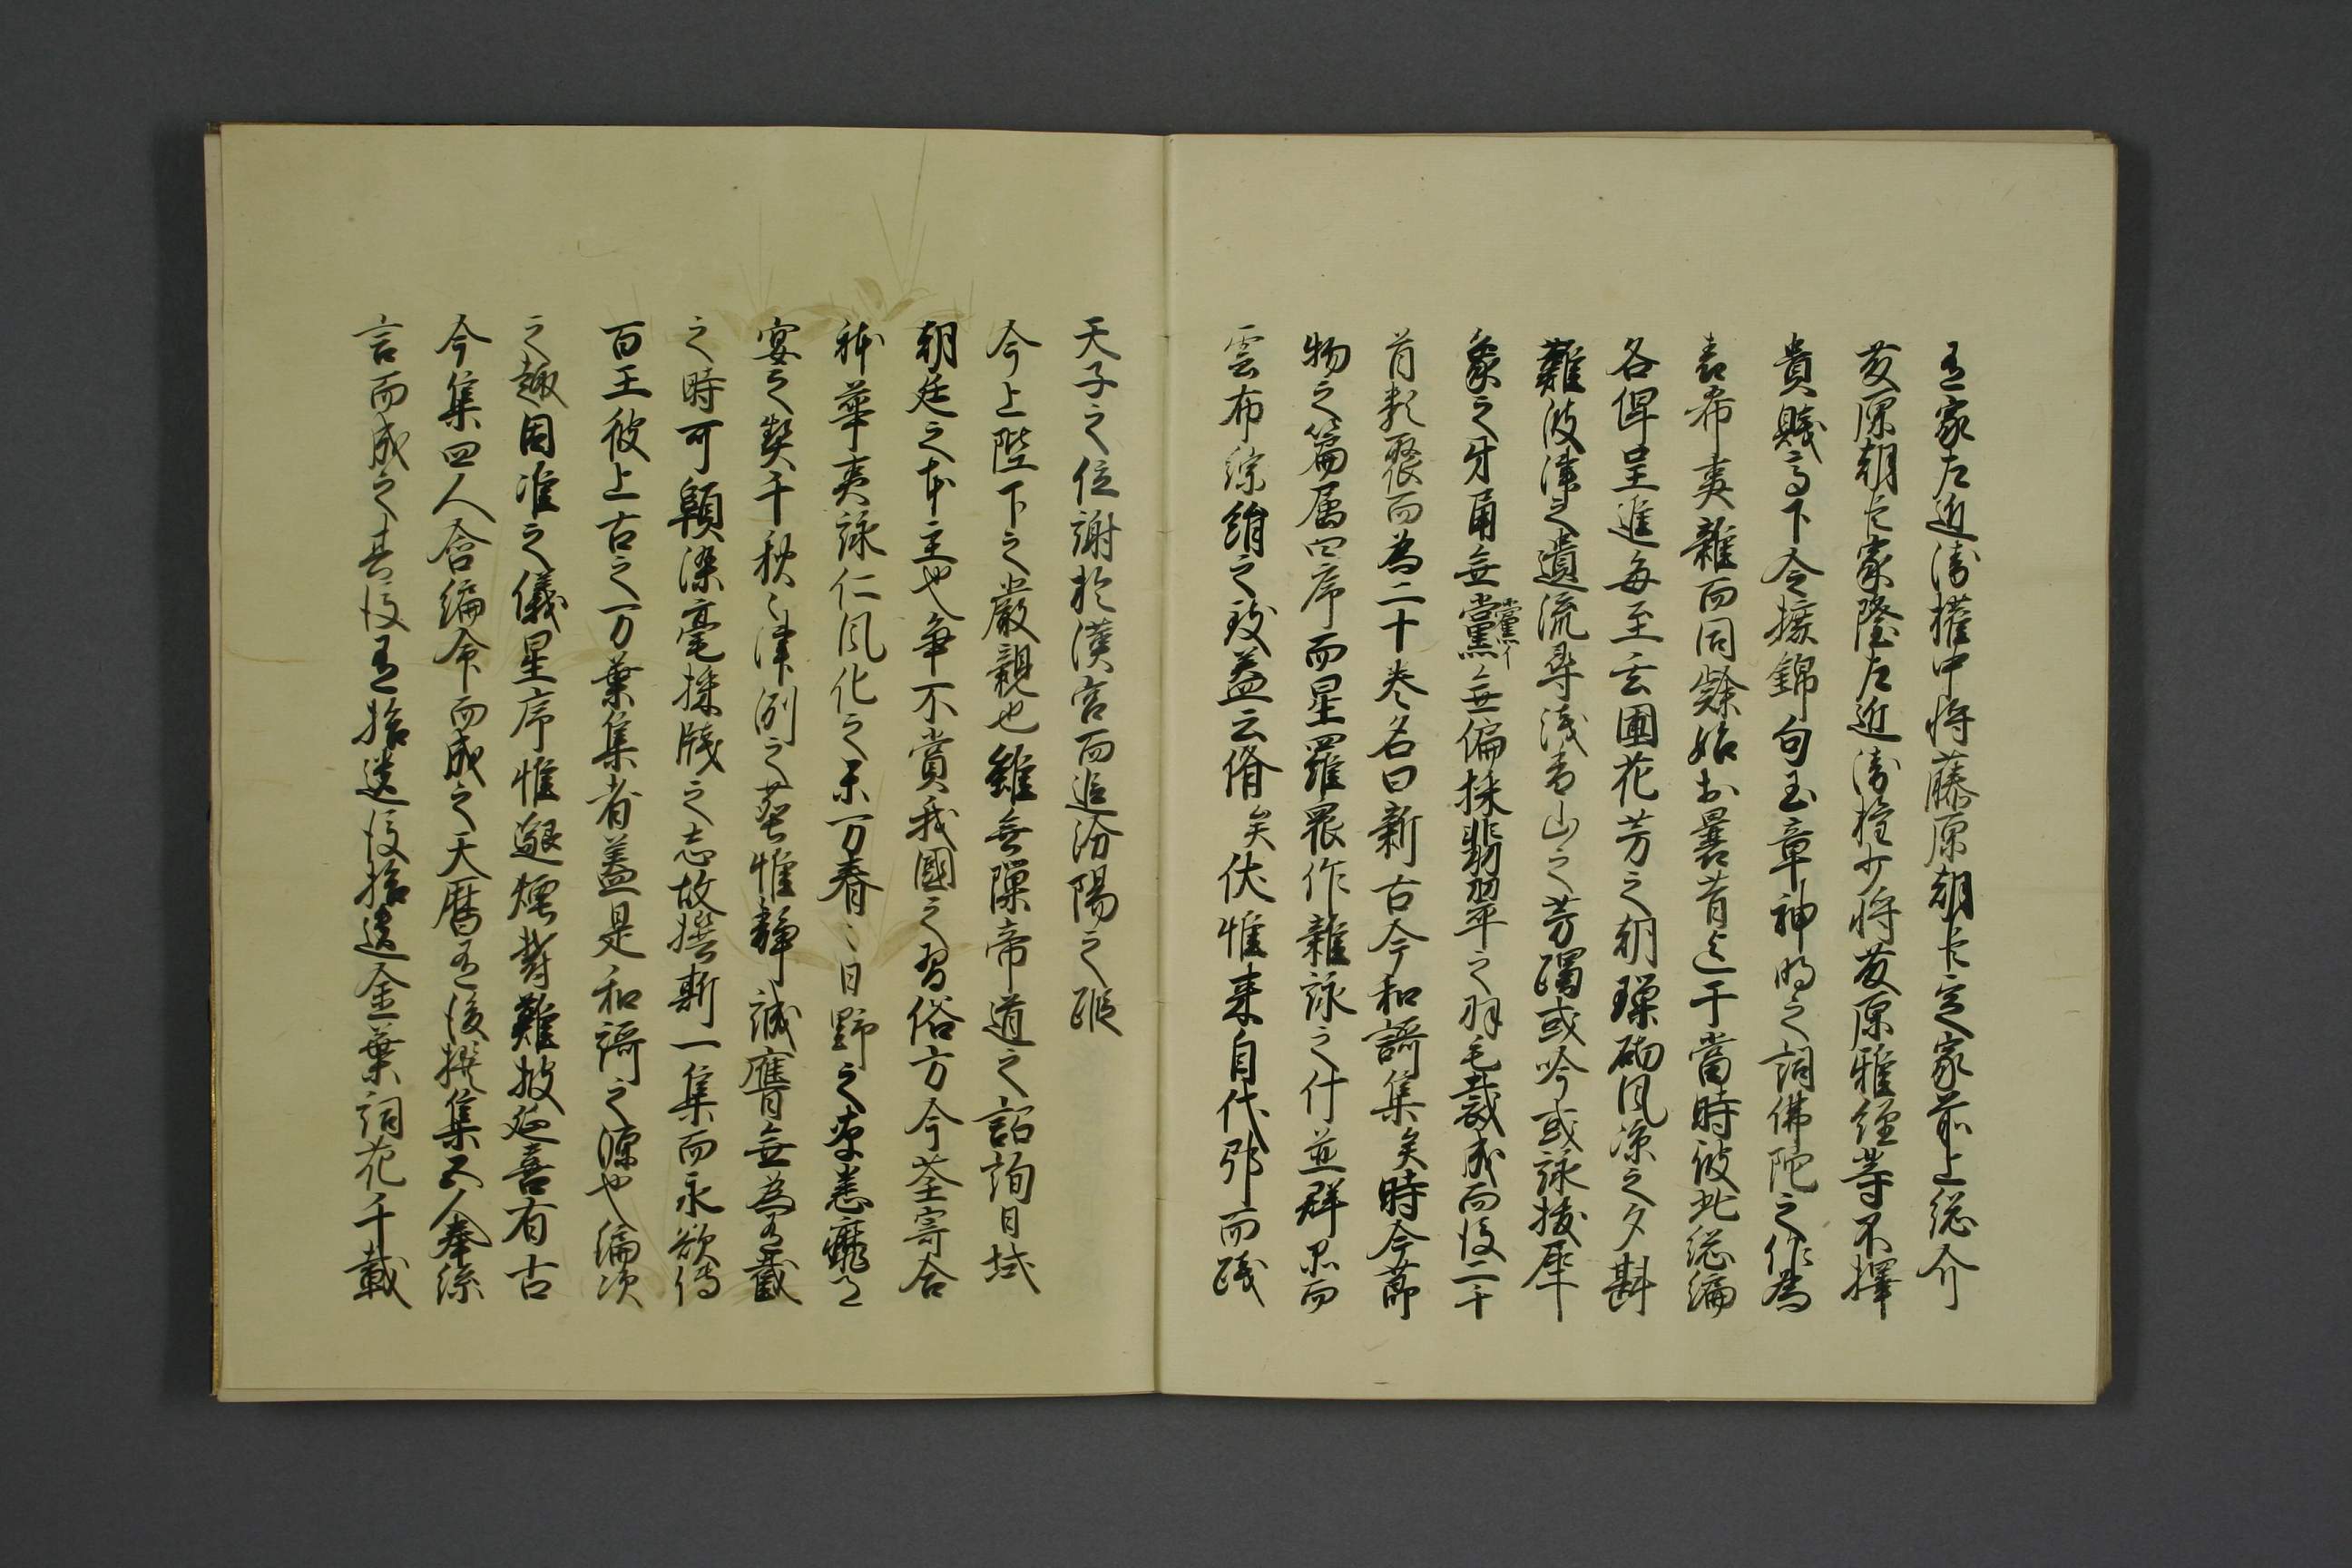 有家左近衛権中将藤原朝臣定家前上総介
藤原朝臣家隆左近衛権少将藤原雅経等不擇
貴賤高下令擴錦句玉章神明之詞佛陀之作為
表希夷雜而同隷始於曩昔迄于當時彼此総編
各俾呈進毎至玄圃花芳之朝璅砌風凉之夕斟
難波津之遺流尋浅香山之芳躅或吟或詠抜犀
象之牙角無黨無偏採翡翠之羽毛裁成而得二十
黨イ
首類聚而為二十巻名曰新古今和謌集矣時令節
物之篇属四序而星羅衆作雜詠之什並群品而
雲布綜緝之致盖云俻矣伏惟来自代邸而踐
天子之位謝於漢宮而追汾陽之蹤
今上陛下之厳親也雖無隙帝道之諮詢日域
朝廷之本主也争不賞我國之習俗方今荃宰合
躰華夷詠仁風化之楽万春〻日野之草悉靡月
宴之契千秋〻津洲之塵惟静誠膺無為有截
之時可頤染毫操牋之志故撰斯一集而永欲傳
百王彼上古之万葉集者盖是和謌之源也編次
之趣因准之儀星序惟邈煙欝難披延喜有古
今集四人含綸命而成之天暦有後撰集五人奉絲
言而成之其後有拾遺後拾遺金葉詞花千載